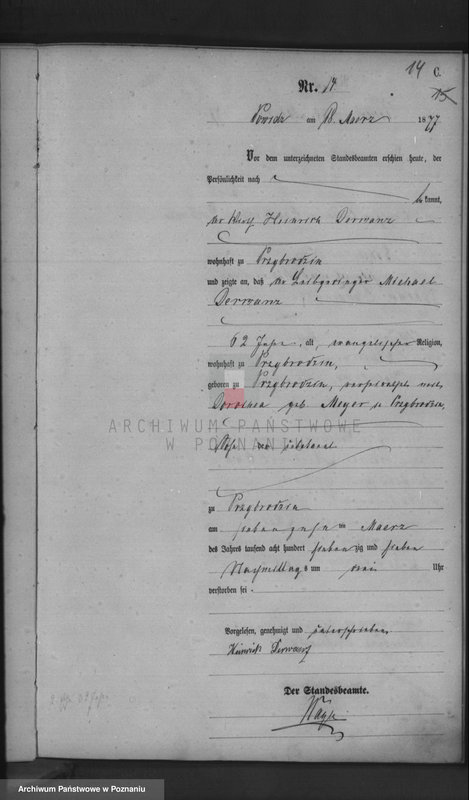 14 C.
15
Nr. 14
Powidz am 18. Maerz 1877
Vor dem unterzeichneten Standesbeamten erschien heute, der
Persönlichkeit nach
be kannt,
der Heinrich Derwanz
wohnhaft zu Przybrodzin
und zeigte an, daß der Leibgedinger Michael
Derwanz
62 Jahre alt, evangelischer Religion,
wohnhaft zu Przybrodzin,
geboren zu Przybrodzin, verheirathet mit
Dorothea geb. Meyer zu Przybrodzin,
Sohn des
zu Przybrodzin
am siebenzehn ten Maerz
des Jahres tausend acht hundert siebenzig und sieben
Nachmittags um drei Uhr
verstorben sei.
Vorgelesen, genehmigt und unterschrieben.
Heinrich Derwanz
Der Standesbeamte.
ARCHIWUM PAŃSTWOWE
W POZNANIU
Archiwum Państwowe w Poznaniu